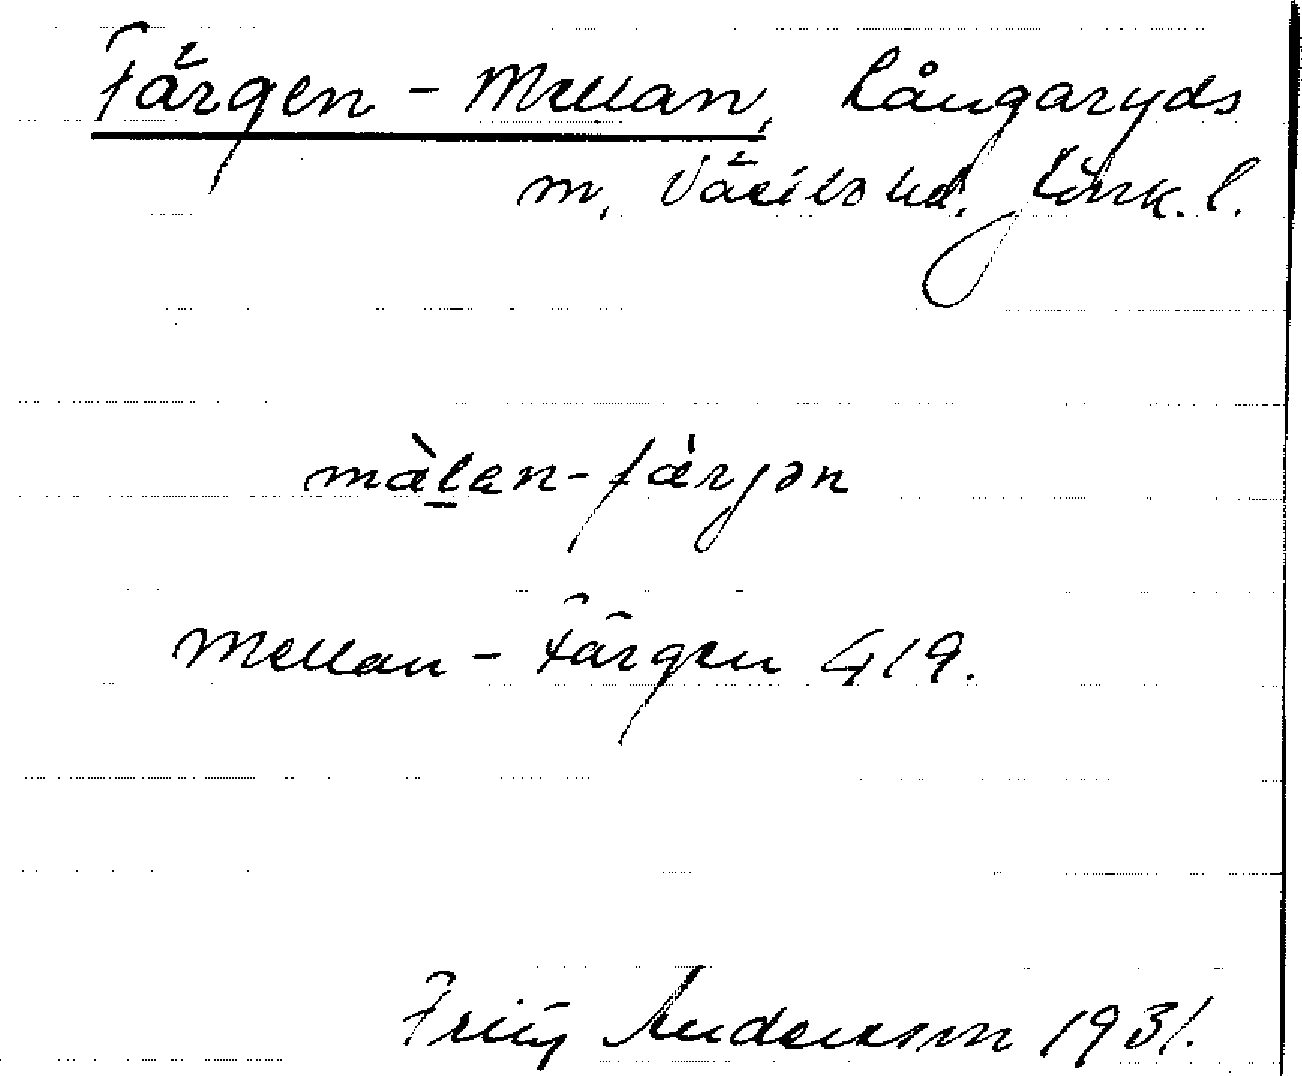 Färgen - Mellan, Långaryds
m, Västbo hd. Jönk. l.
màlan-färjən
Mellan - Färgen G 19.
Fritz Anderson 1931.